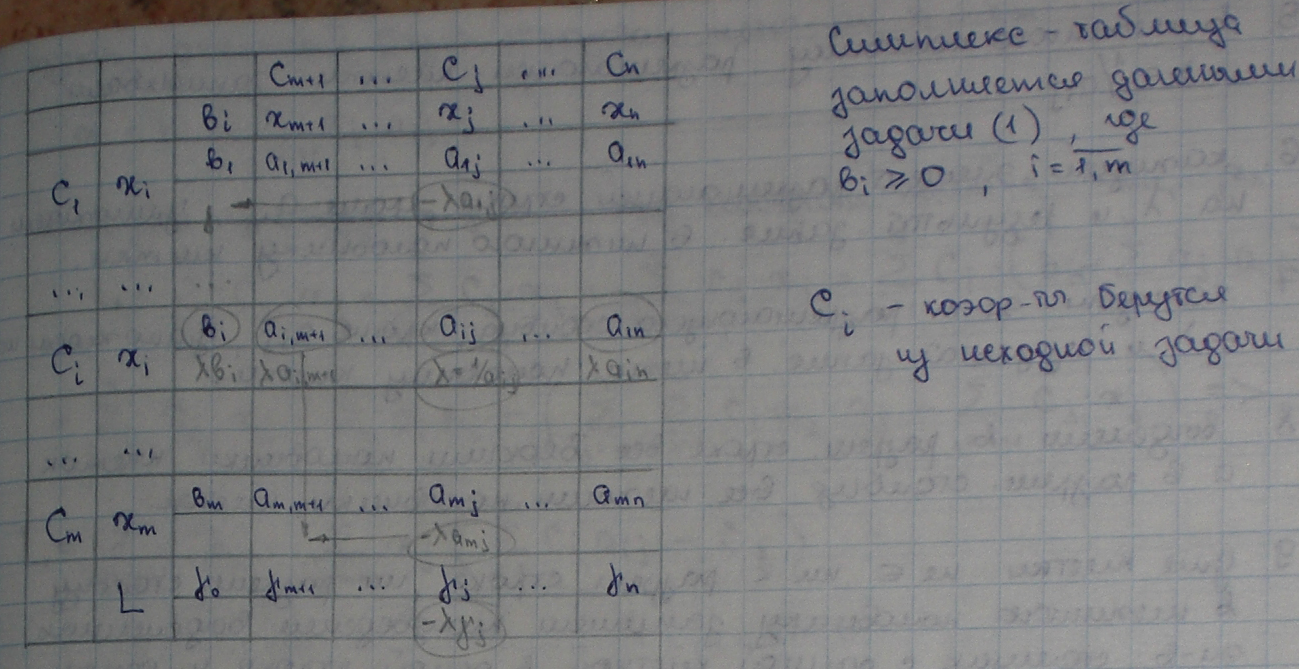 Cm+1 ... Cj ... Cn
вi xm+1 ... xj ... xn
C1 xi в1 a1,m+1 ... a1j ... a1n
-λa1j
... ... ...
Ci xi вi ai,m+1 ... aij ... ain
λвi λai,m+1 λ=1/aij λain
... ...
Cm xm вm am,m+1 ... amj ... amn
-λamj
L γ0 γm+1 ... γj ... γn
-λγj
Симплекс-таблица
заполняется данными
задачи (1), где
вi ⩾ 0, i = 1,m
Ci - коэф-ты берутся
из исходной задачи